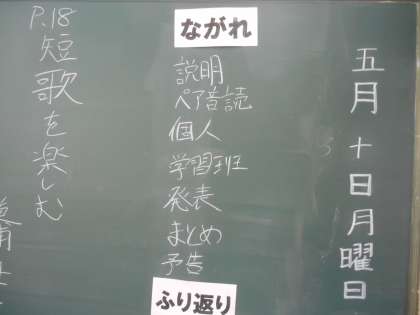 五月十日月曜日
ながれ
説明
ペア音読
個人
学習班
発表
まとめ
予告
ふり返り
P.18
短歌を楽しむ